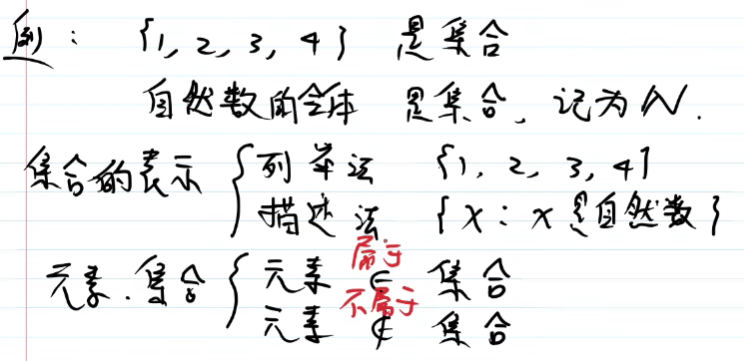 例： {1, 2, 3, 4} 是集合
自然数的全体 是集合, 记为 N.
集合的表示 { 列举法 {1, 2, 3, 4}
描述法 {x: x是自然数}
属于
元素.集合 { 元素 ∈ 集合
不属于
元素 ∉ 集合